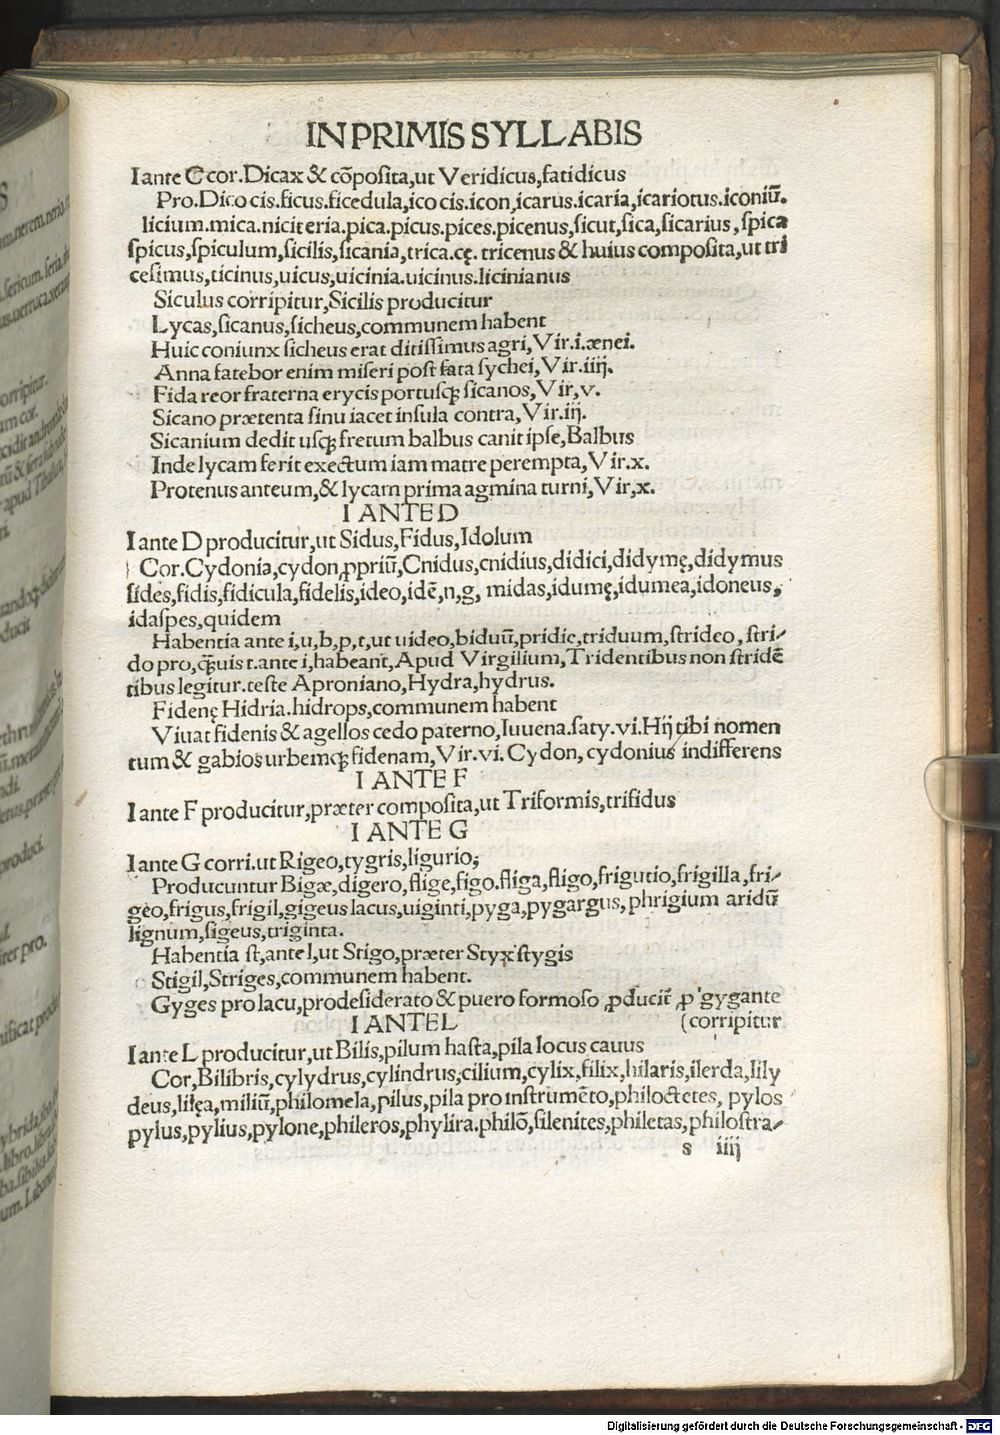 IN PRIMIS SYLLABIS
I ante C cor. Dicax & cōposita, ut Veridicus, fatidicus
Pro. Dico cis. ficus. ficedula, ico cis. icon, icarus. icaria, icariotus. iconiū.
licium. mica. nicit eria. pica. picus. pices. picenus, sicut, sica, sicarius, spica
spicus, spiculum, sicilis, sicania, trica. cę. tricenus & huius composita, ut tri
cesimus, ticinus, uicus, uicinia. uicinus. licinianus
Siculus corripitur, Sicilis producitur
Lycas, sicanus, sicheus, communem habent
Huic coniunx sicheus erat ditissimus agri, Vir. i. ænei.
Anna fatebor enim miseri post fata sychei, Vir. iiij.
Fida reor fraterna erycis portusqꝫ sicanos, Vir, v.
Sicano prætenta sinu iacet insula contra, Vir. iij.
Sicanium dedit usqꝫ fretum balbus canit ipse, Balbus
Inde lycam ferit exectum iam matre perempta, Vir. x.
Protenus anteum, & lycam prima agmina turni, Vir, x.
I ANTE D
I ante D producitur, ut Sidus, Fidus, Idolum
Cor. Cydonia, cydon, ꝓpriū, Cnidus, cnidius, didici, didymę, didymus
sides, fidis, fidicula, fidelis, ideo, idē, n, g, midas, idumę, idumea, idoneus,
idaspes, quidem
Habentia ante i, u, b, p, t, ut uideo, biduū, pridie, triduum, strideo, stri⸗
do pro, qꝫuis t. ante i, habeant, Apud Virgilium, Tridentibus non stridē
tibus legitur. teste Aproniano, Hydra, hydrus.
Fidenę Hidria. hidrops, communem habent
Viuat fidenis & agellos cedo paterno, Iuuena. saty. vi. Hij tibi nomen
tum & gabios urbemqꝫ fidenam, Vir. vi. Cydon, cydonius indifferens
I ANTE F
I ante F producitur, præter composita, ut Triformis, trifidus
I ANTE G
I ante G corri. ut Rigeo, tygris, ligurio,
Producuntur Bigæ, digero, flige, figo. fliga, fligo, frigutio, frigilla, fri⸗
geo, frigus, frigil, gigeus lacus, uiginti, pyga, pygargus, phrigium aridū
lignum, sigeus, triginta.
Habentia st, ante I, ut Stigo, præter Styx stygis
Stigil, Striges, communem habent.
Gyges pro lacu, pro desiderato & puero formoso ꝓducit᷑, ꝓ gygante
I ANTE L (corripitur
I ante L producitur, ut Bilis, pilum hasta, pila locus cauus
Cor, Bilibris, cylydrus, cylindrus, cilium, cylix, filix, hilaris, ilerda, lily
deus, lilęa, miliū, philomela, pilus, pila pro instrumēto, philoctetes, pylos
pylus, pylius, pylone, phileros, phylira. philō, silenites, philetas, philostra⸗
s iiij
Digitalisierung gefördert durch die Deutsche Forschungsgemeinschaft - DFG